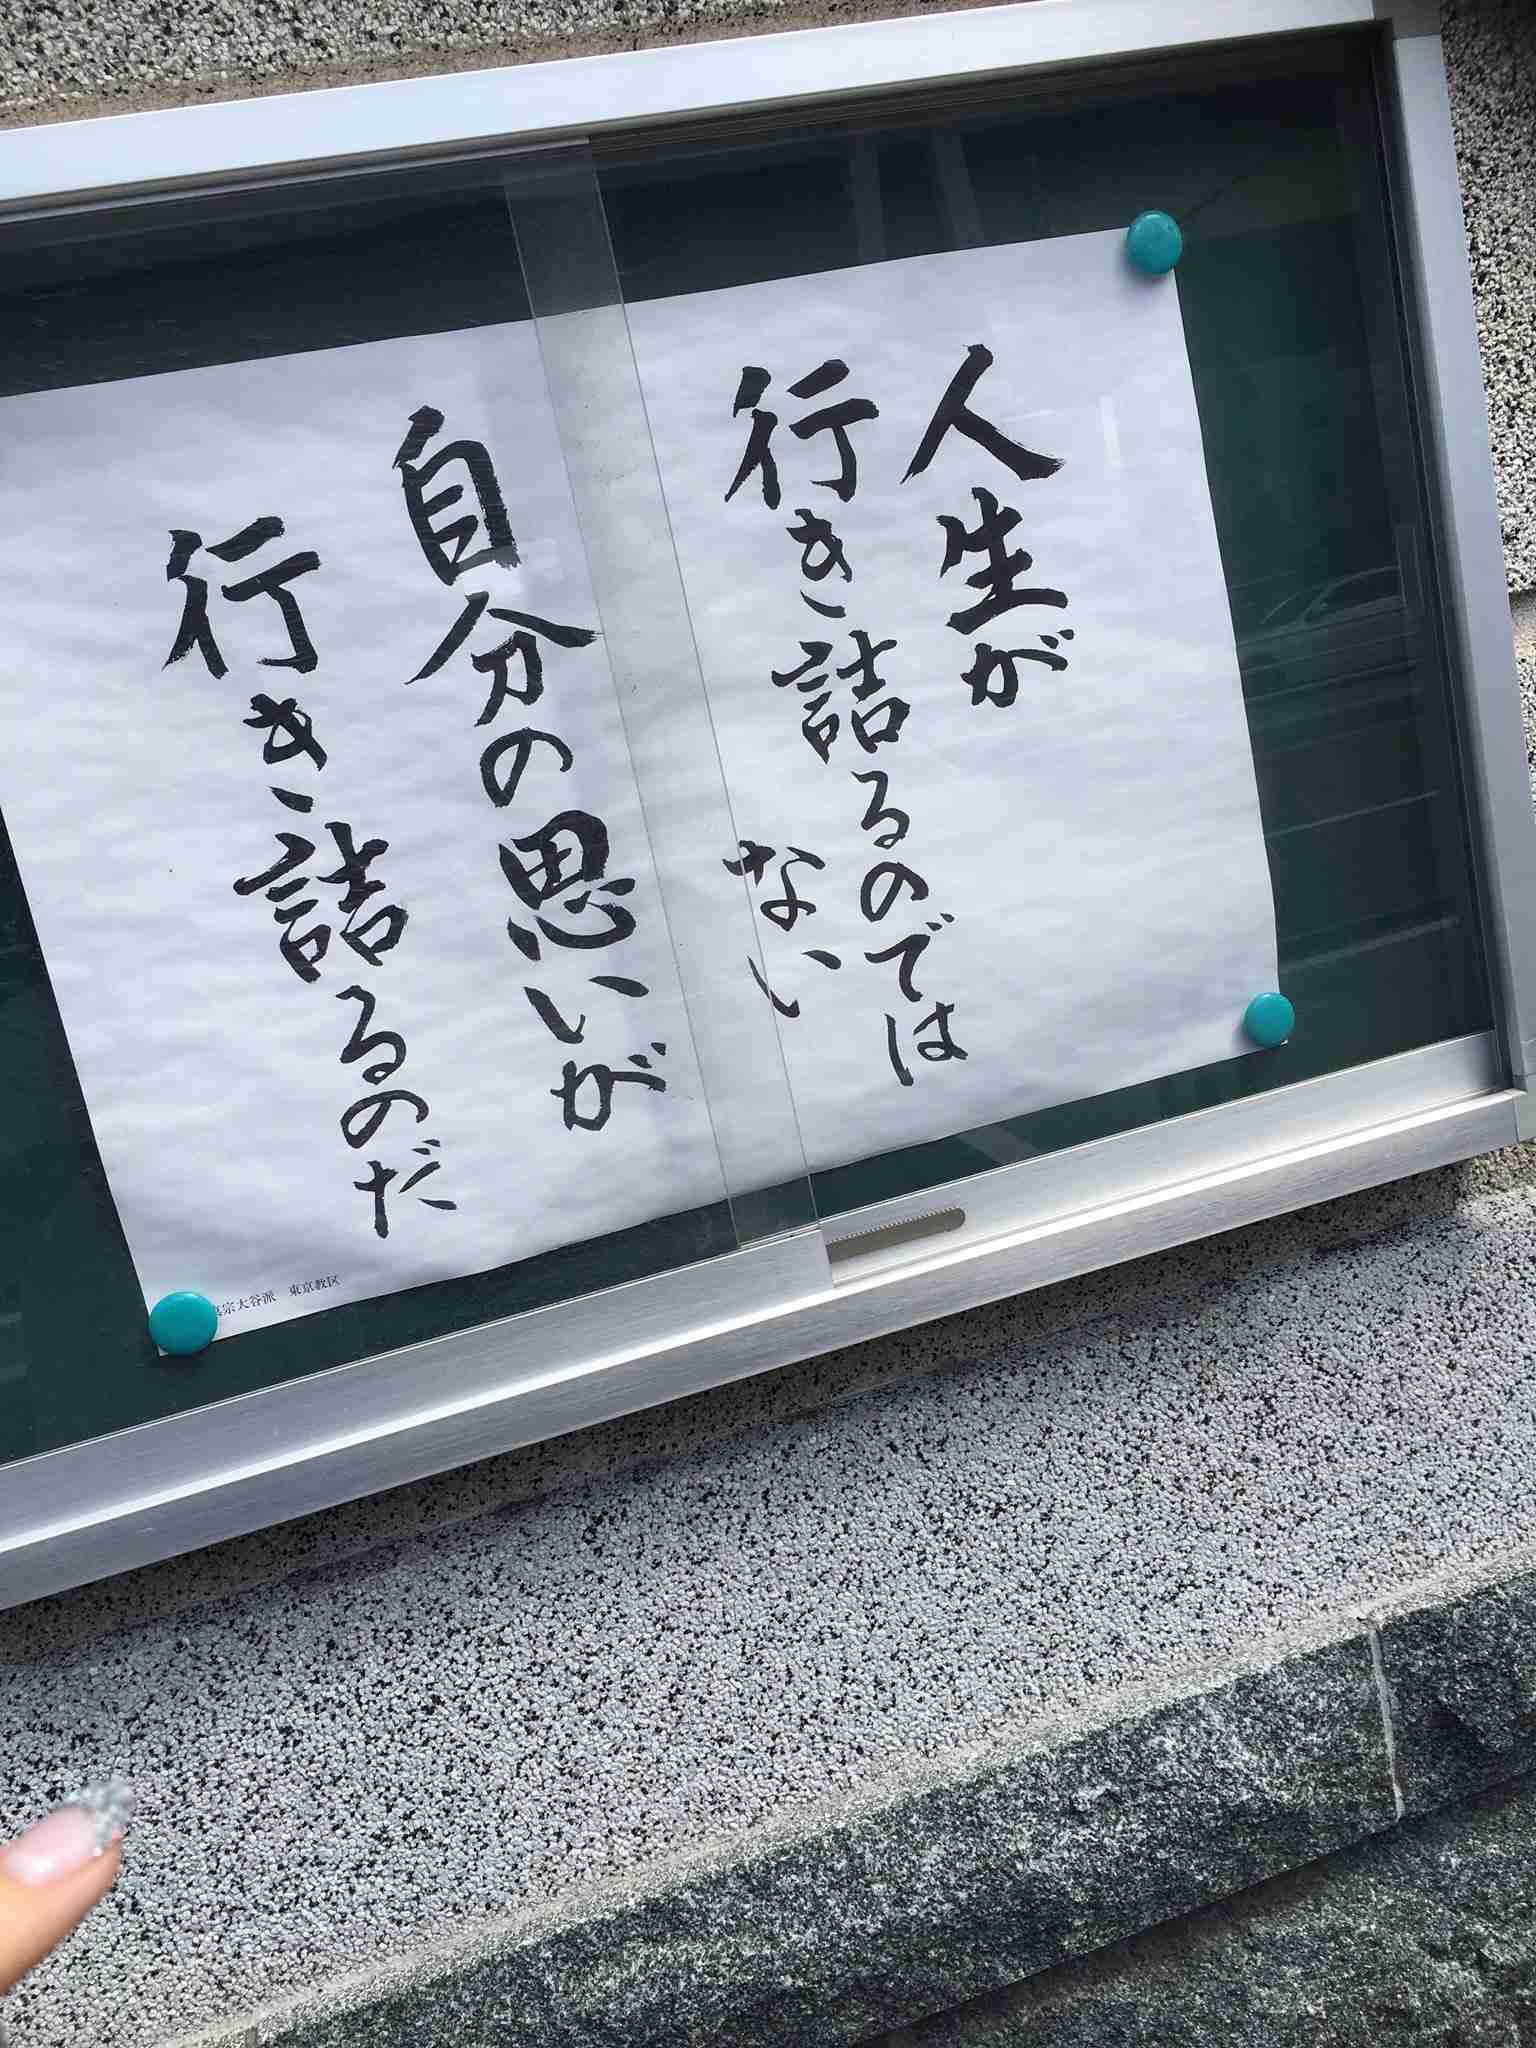 人生が
行き詰るのでは
ない
自分の思いが
行き詰るのだ
真宗大谷派 東京教区